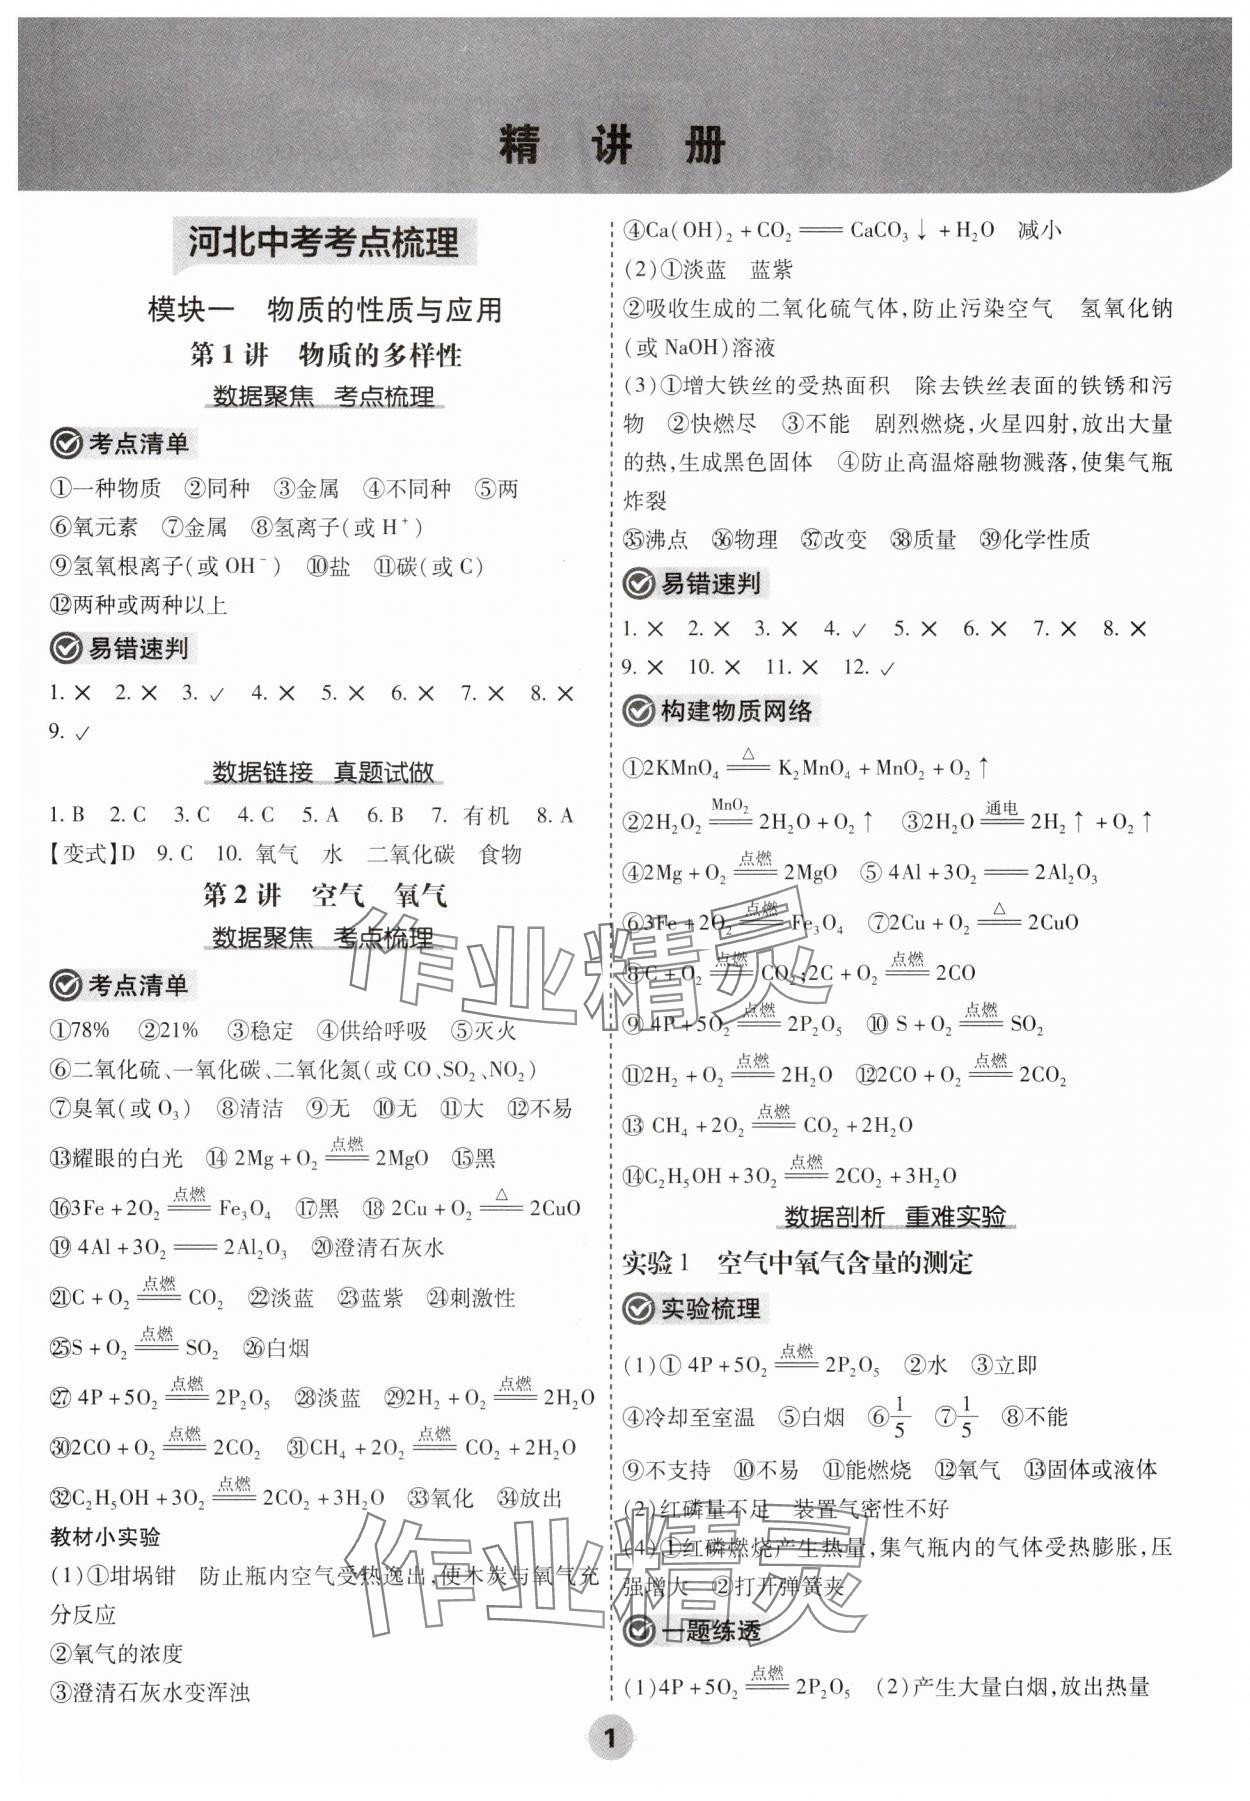 精 讲 册
河北中考考点梳理
模块一 物质的性质与应用
第1讲 物质的多样性
数据聚焦 考点梳理
考点清单
①一种物质 ②同种 ③金属 ④不同种 ⑤两
⑥氧元素 ⑦金属 ⑧氢离子(或 H⁺)
⑨氢氧根离子(或 OH⁻) ⑩盐 ⑪碳(或 C)
⑫两种或两种以上
易错速判
1. × 2. × 3. ✓ 4. × 5. × 6. × 7. × 8. ×
9. ✓
数据链接 真题试做
1. B 2. C 3. C 4. C 5. A 6. B 7. 有机 8. A
【变式】D 9. C 10. 氧气 水 二氧化碳 食物
第2讲 空气 氧气
数据聚焦 考点梳理
考点清单
①78% ②21% ③稳定 ④供给呼吸 ⑤灭火
⑥二氧化硫、一氧化碳、二氧化氮(或 CO、SO₂、NO₂)
⑦臭氧(或 O₃) ⑧清洁 ⑨无 ⑩无 ⑪大 ⑫不易
⑬耀眼的白光 ⑭ 2Mg + O₂ =点燃= 2MgO ⑮黑
⑯3Fe + 2O₂ =点燃= Fe₃O₄ ⑰黑 ⑱ 2Cu + O₂ =△= 2CuO
⑲ 4Al + 3O₂ == 2Al₂O₃ ⑳澄清石灰水
㉑C + O₂ =点燃= CO₂ ㉒淡蓝 ㉓蓝紫 ㉔刺激性
㉕S + O₂ =点燃= SO₂ ㉖白烟
㉗ 4P + 5O₂ =点燃= 2P₂O₅ ㉘淡蓝 ㉙2H₂ + O₂ =点燃= 2H₂O
㉚2CO + O₂ =点燃= 2CO₂ ㉛CH₄ + 2O₂ =点燃= CO₂ + 2H₂O
㉜C₂H₅OH + 3O₂ =点燃= 2CO₂ + 3H₂O ㉝氧化 ㉞放出
教材小实验
(1)①坩埚钳 防止瓶内空气受热逸出,使木炭与氧气充
分反应
②氧气的浓度
③澄清石灰水变浑浊
④Ca(OH)₂ + CO₂ == CaCO₃↓ + H₂O 减小
(2)①淡蓝 蓝紫
②吸收生成的二氧化硫气体,防止污染空气 氢氧化钠
(或 NaOH)溶液
(3)①增大铁丝的受热面积 除去铁丝表面的铁锈和污
物 ②快燃尽 ③不能 剧烈燃烧,火星四射,放出大量
的热,生成黑色固体 ④防止高温熔融物溅落,使集气瓶
炸裂
㉟沸点 ㊱物理 ㊲改变 ㊳质量 ㊴化学性质
易错速判
1. × 2. × 3. × 4. ✓ 5. × 6. × 7. × 8. ×
9. × 10. × 11. × 12. ✓
构建物质网络
①2KMnO₄ =△= K₂MnO₄ + MnO₂ + O₂↑
②2H₂O₂ =MnO₂= 2H₂O + O₂↑ ③2H₂O =通电= 2H₂↑ + O₂↑
④2Mg + O₂ =点燃= 2MgO ⑤ 4Al + 3O₂ == 2Al₂O₃
⑥3Fe + 2O₂ =点燃= Fe₃O₄ ⑦2Cu + O₂ =△= 2CuO
⑧C + O₂ =点燃= CO₂;2C + O₂ =点燃= 2CO
⑨ 4P + 5O₂ =点燃= 2P₂O₅ ⑩ S + O₂ =点燃= SO₂
⑪2H₂ + O₂ =点燃= 2H₂O ⑫2CO + O₂ =点燃= 2CO₂
⑬ CH₄ + 2O₂ =点燃= CO₂ + 2H₂O
⑭C₂H₅OH + 3O₂ =点燃= 2CO₂ + 3H₂O
数据剖析 重难实验
实验1 空气中氧气含量的测定
实验梳理
(1)① 4P + 5O₂ =点燃= 2P₂O₅ ②水 ③立即
④冷却至室温 ⑤白烟 ⑥1/5 ⑦1/5 ⑧不能
⑨不支持 ⑩不易 ⑪能燃烧 ⑫氧气 ⑬固体或液体
(2)红磷量不足 装置气密性不好
(4)①红磷燃烧产生热量,集气瓶内的气体受热膨胀,压
强增大 ②打开弹簧夹
一题练透
(1)4P + 5O₂ =点燃= 2P₂O₅ (2)产生大量白烟,放出热量
1
作业精灵
作业精灵